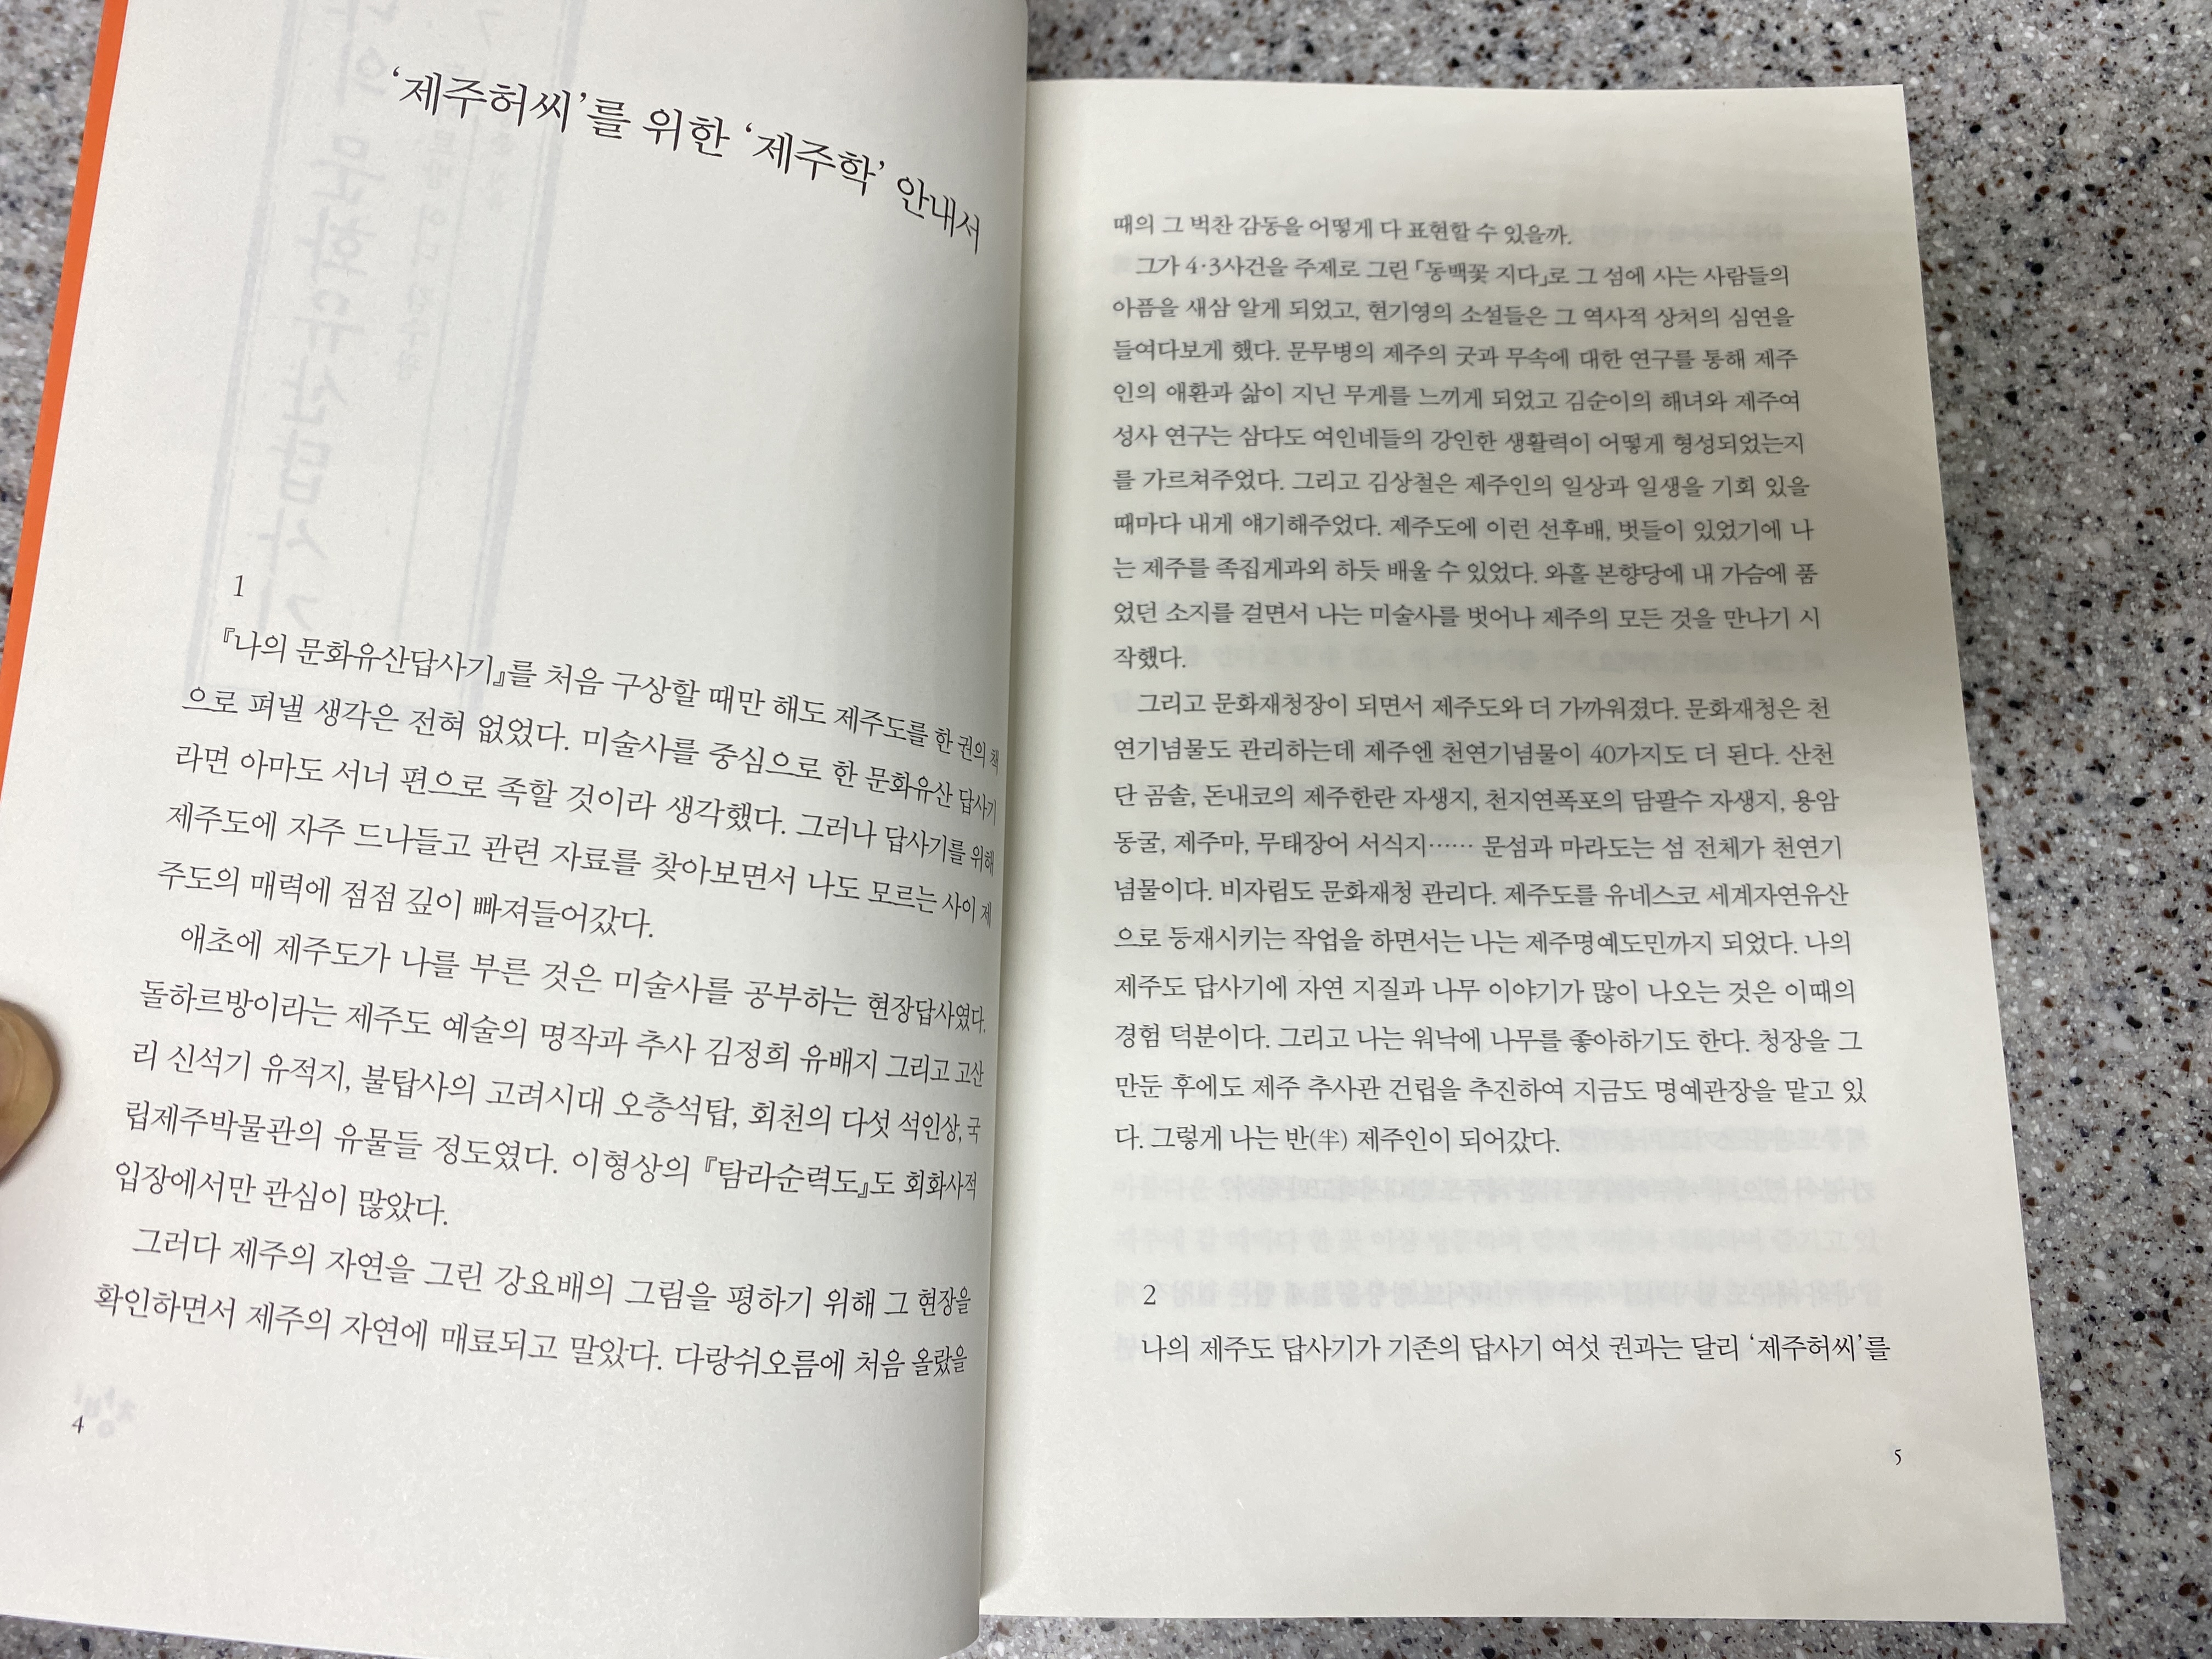 ‘제주허씨’를 위한 ‘제주학’ 안내서
1
『나의 문화유산답사기』를 처음 구상할 때만 해도 제주도를 한 권의 책
으로 펴낼 생각은 전혀 없었다. 미술사를 중심으로 한 문화유산 답사기
라면 아마도 서너 편으로 족할 것이라 생각했다. 그러나 답사기를 위해
제주도에 자주 드나들고 관련 자료를 찾아보면서 나도 모르는 사이 제
주도의 매력에 점점 깊이 빠져들어갔다.
애초에 제주도가 나를 부른 것은 미술사를 공부하는 현장답사였다.
돌하르방이라는 제주도 예술의 명작과 추사 김정희 유배지 그리고 고산
리 신석기 유적지, 불탑사의 고려시대 오층석탑, 회천의 다섯 석인상, 국
립제주박물관의 유물들 정도였다. 이형상의 『탐라순력도』도 회화사적
입장에서만 관심이 많았다.
그러다 제주의 자연을 그린 강요배의 그림을 평하기 위해 그 현장을
확인하면서 제주의 자연에 매료되고 말았다. 다랑쉬오름에 처음 올랐을
4
때의 그 벅찬 감동을 어떻게 다 표현할 수 있을까.
그가 4·3사건을 주제로 그린 「동백꽃 지다」로 그 섬에 사는 사람들의
아픔을 새삼 알게 되었고, 현기영의 소설들은 그 역사적 상처의 심연을
들여다보게 했다. 문무병의 제주의 굿과 무속에 대한 연구를 통해 제주
인의 애환과 삶이 지닌 무게를 느끼게 되었고 김순이의 해녀와 제주여
성사 연구는 삼다도 여인네들의 강인한 생활력이 어떻게 형성되었는지
를 가르쳐주었다. 그리고 김상철은 제주인의 일상과 일생을 기회 있을
때마다 내게 얘기해주었다. 제주도에 이런 선후배, 벗들이 있었기에 나
는 제주를 족집게과외 하듯 배울 수 있었다. 와흘 본향당에 내 가슴에 품
었던 소지를 걸면서 나는 미술사를 벗어나 제주의 모든 것을 만나기 시
작했다.
그리고 문화재청장이 되면서 제주도와 더 가까워졌다. 문화재청은 천
연기념물도 관리하는데 제주엔 천연기념물이 40가지도 더 된다. 산천
단 곰솔, 돈내코의 제주한란 자생지, 천지연폭포의 담팔수 자생지, 용암
동굴, 제주마, 무태장어 서식지…… 문섬과 마라도는 섬 전체가 천연기
념물이다. 비자림도 문화재청 관리다. 제주도를 유네스코 세계자연유산
으로 등재시키는 작업을 하면서는 나는 제주명예도민까지 되었다. 나의
제주도 답사기에 자연 지질과 나무 이야기가 많이 나오는 것은 이때의
경험 덕분이다. 그리고 나는 워낙에 나무를 좋아하기도 한다. 청장을 그
만둔 후에도 제주 추사관 건립을 추진하여 지금도 명예관장을 맡고 있
다. 그렇게 나는 반(半) 제주인이 되어갔다.
2
나의 제주도 답사기가 기존의 답사기 여섯 권과는 달리 ‘제주허씨’를
5